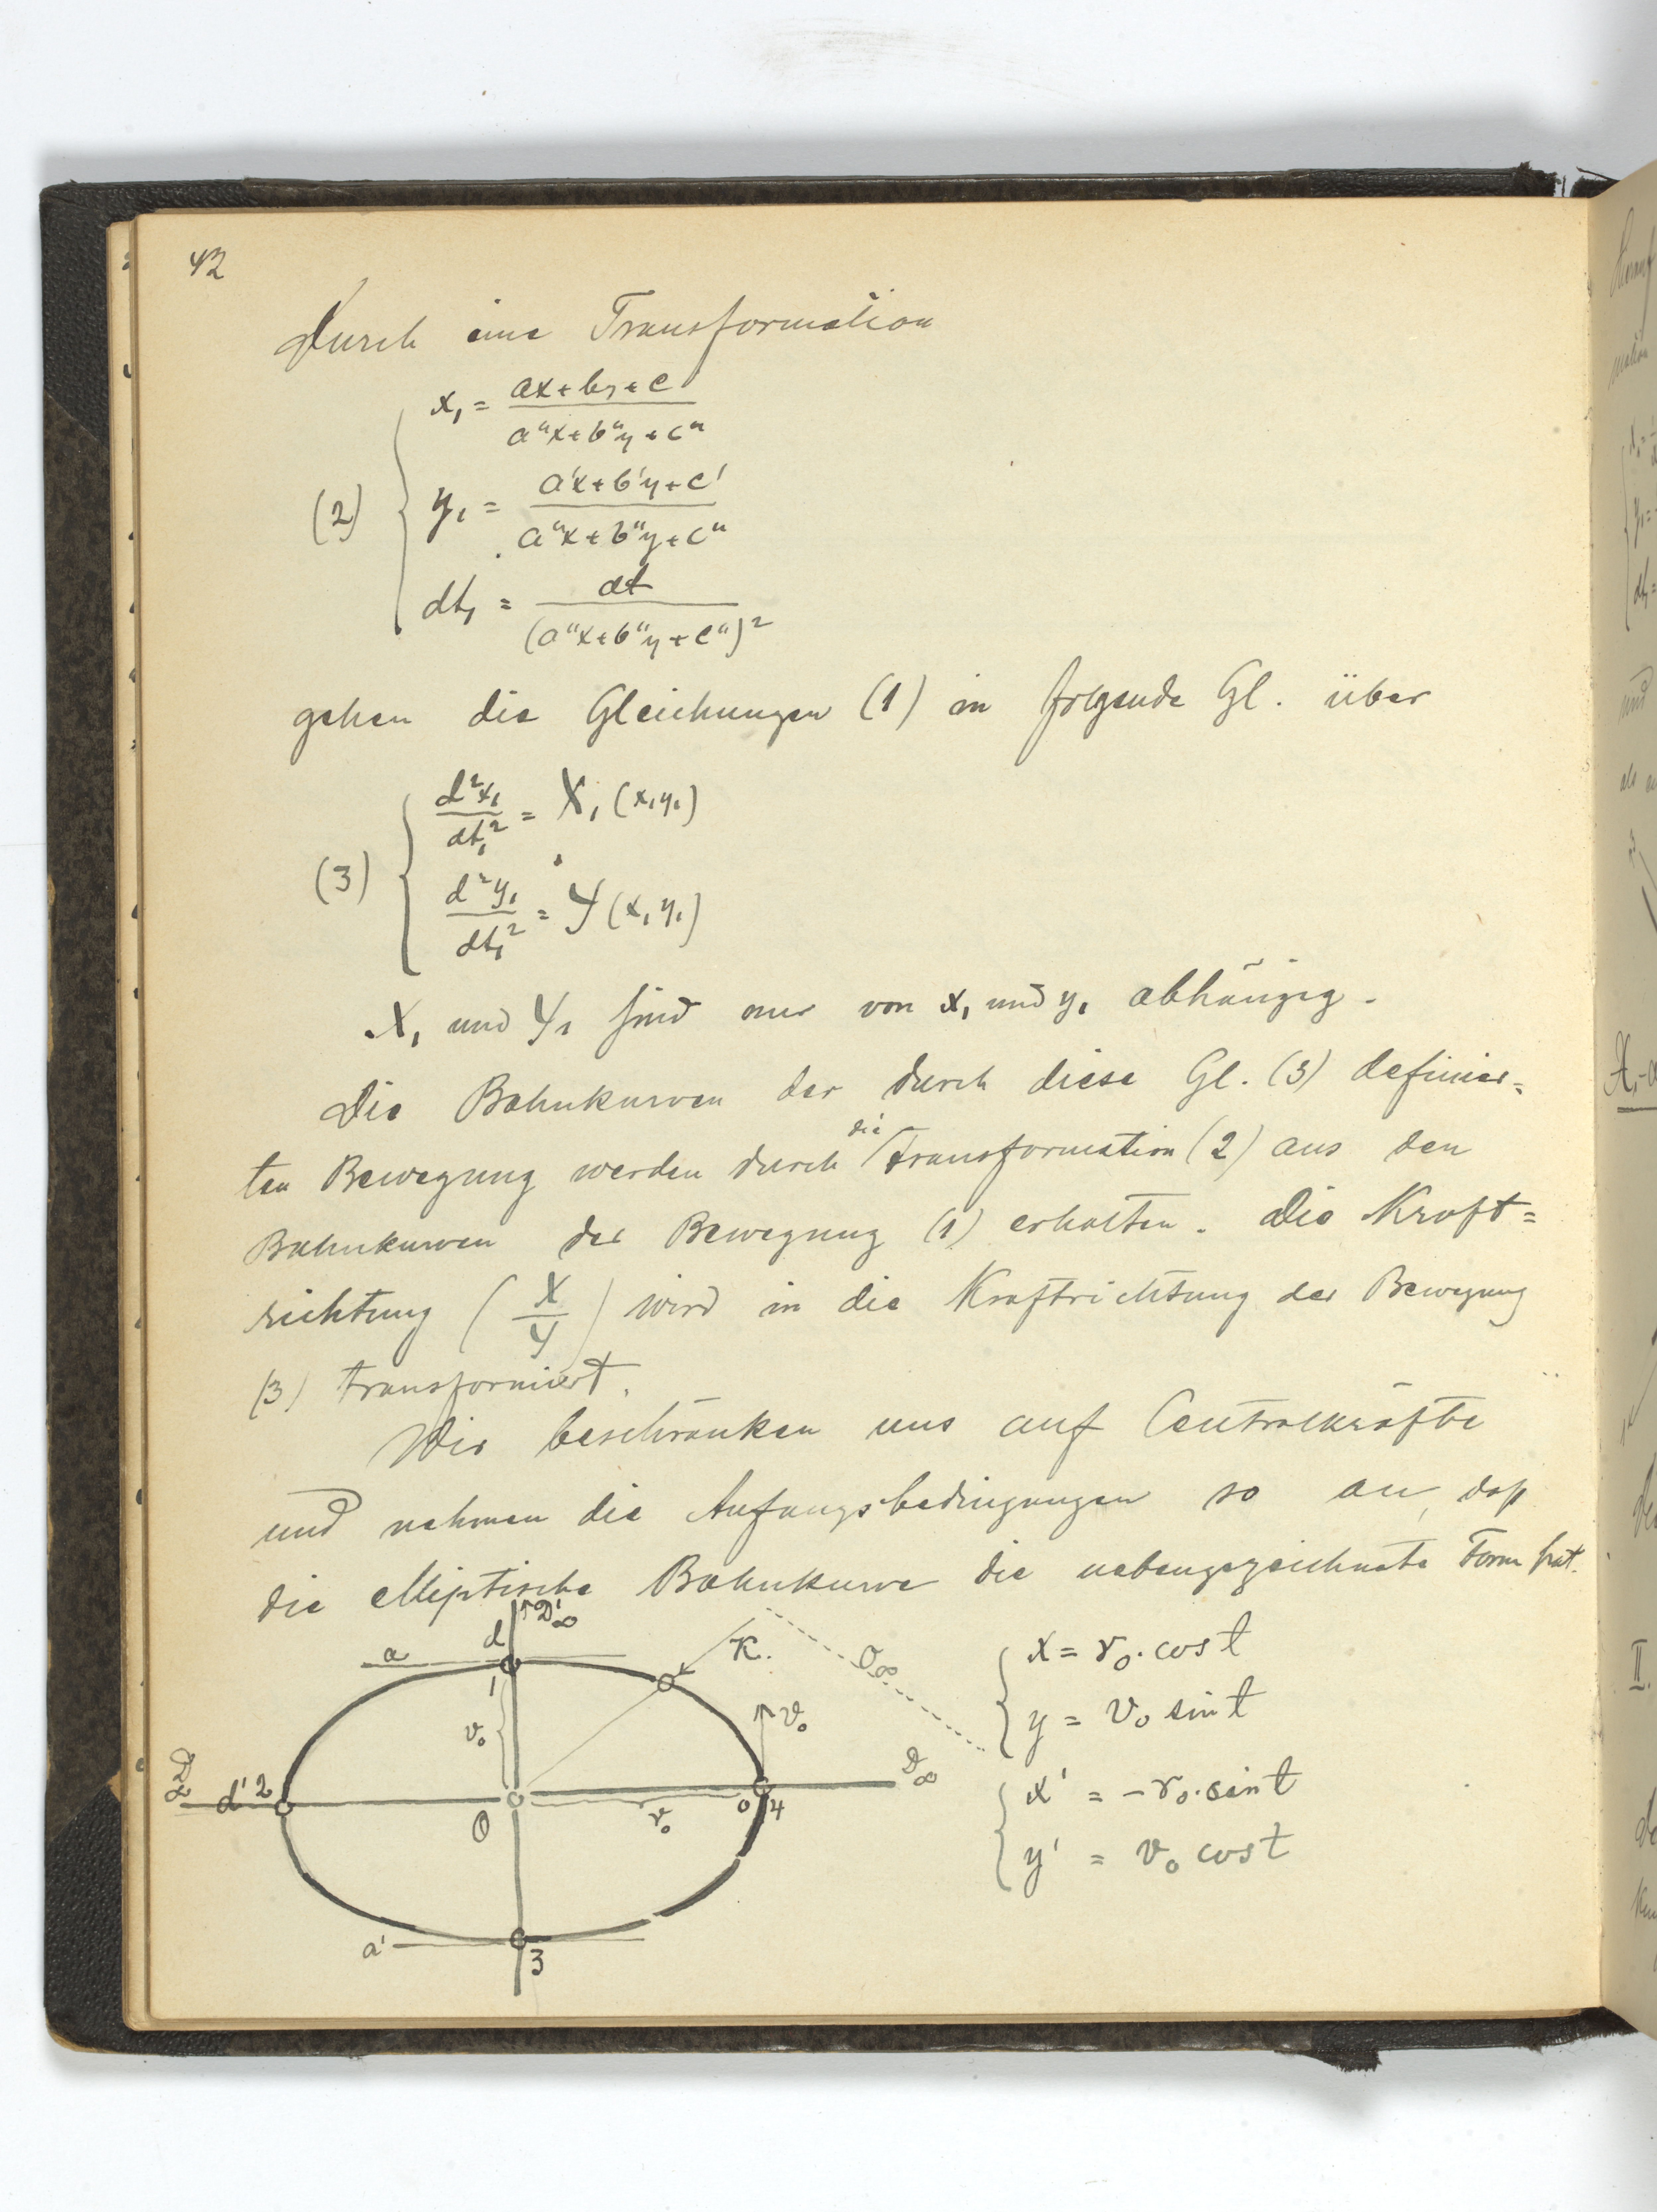 42
Durch eine Transformation
x₁ = (ax + by + c) / (a"x + b"y + c")
(2) y₁ = (a'x + b'y + c') / (a"x + b"y + c")
dt₁ = dt / (a"x + b"y + c")²
gehen die Gleichungen (1) in folgende Gl. über
d²x₁/dt₁² = X₁ (x₁y₁)
(3)
d²y₁/dt₁² = Y (x₁ y₁)
X₁ und Y₁ sind nur von x₁ und y₁ abhängig.
Die Bahnkurven der durch diese Gl. (3) definier=
die
ten Bewegung werden durch Transformation (2) aus den
Bahnkurven der Bewegung (1) erhalten. Die Kraft=
richtung (X/Y) wird in die Kraftrichtung der Bewegung
(3) transformiert.
Wir beschränken uns auf Centralkräfte
und nehmen die Anfangsbedingungen so an, daß
die elliptische Bahnkurve die nebengezeichnete Form hat.
d D'∞
a K. O∞ x = r₀. cos t
1
v₀ v₀ y = v₀ sin t
D∞ d' 2 D∞ x' = -r₀. sin t
O r₀ 0 4
y' = v₀ cos t
a' 3